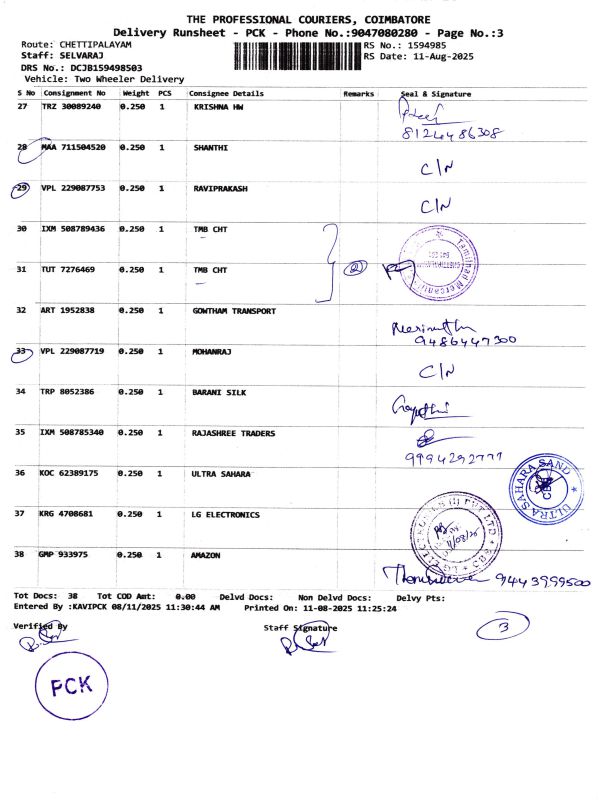 THE PROFESSIONAL COURIERS, COIMBATORE
Delivery Runsheet - PCK - Phone No.:9047080280 - Page No.:3
Route: CHETTIPALAYAM RS No.: 1594985
Staff: SELVARAJ RS Date: 11-Aug-2025
DRS No.: DCJB159498503
Vehicle: Two Wheeler Delivery
S No Consignment No Weight PCS Consignee Details Remarks Seal & Signature
27 TRZ 30089240 0.250 1 KRISHNA HW
8124486308
28 MAA 711504520 0.250 1 SHANTHI
C/N
29 VPL 229087753 0.250 1 RAVIPRAKASH
C/N
30 IXM 508789436 0.250 1 TMB CHT
31 TUT 7276469 0.250 1 TMB CHT 2
32 ART 1952838 0.250 1 GOWTHAM TRANSPORT
9486447300
33 VPL 229087719 0.250 1 MOHANRAJ
C/N
34 TRP 8052386 0.250 1 BARANI SILK
Gayathri
35 IXM 508785340 0.250 1 RAJASHREE TRADERS
9994292777
36 KOC 62389175 0.250 1 ULTRA SAHARA
ULTRA SAHARA SAND
37 KRG 4708681 0.250 1 LG ELECTRONICS
LG ELECTRONICS (I) PVT LTD
11/08/25
38 GMP 933975 0.250 1 AMAZON
9443999500
Tot Docs: 38 Tot COD Amt: 0.00 Delvd Docs: Non Delvd Docs: Delvy Pts:
Entered By :KAVIPCK 08/11/2025 11:30:44 AM Printed On: 11-08-2025 11:25:24
Verified By Staff Signature 3
PCK